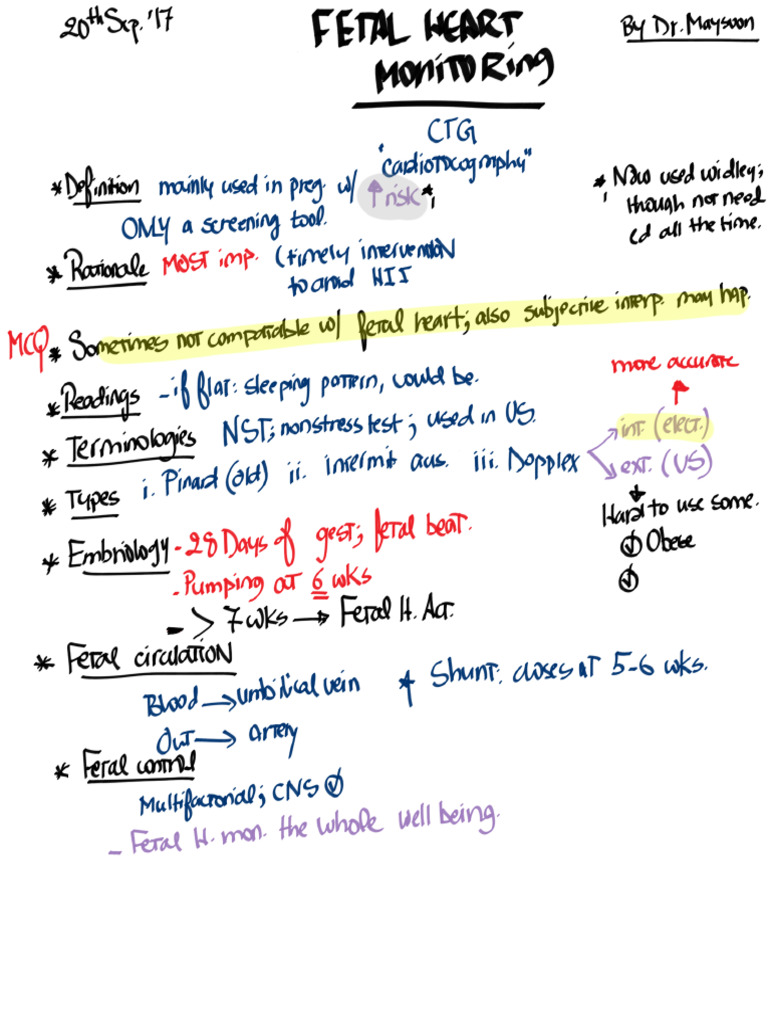 20th Sep. '17
FETAL HEART
MONITORing
By Dr. Maysoon
CTG
"cardiotocography"
* Definition mainly used in preg. w/ ↑ risk *
ONLY a screening tool.
* Now used widley;
though not need
ed all the time.
* Rationale MOST imp. (timely intervention
to avoid HII
MCQ * Sometimes not compatiable w/ fetal heart; also subjective interp. may hap.
* Readings - if flat: sleeping pattern, would be.
more accurate
* Terminologies NST; nonstress test; used in US.
int. (elect.)
* Types i. Pinard (old) ii. intermit aus. iii. Dopplex
ext. (US)
Hard to use some.
Obese
* Embriology - 28 Days of gest; fetal beat.
- Pumping at 6 wks
- > 7 wks → Fetal H. Act.
* Fetal circulation
Blood → umbilical vein
* Shunt: closes at 5-6 wks.
Out → artery
* Fetal control
Multifactorial; CNS
- Fetal H. mon. the whole well being.